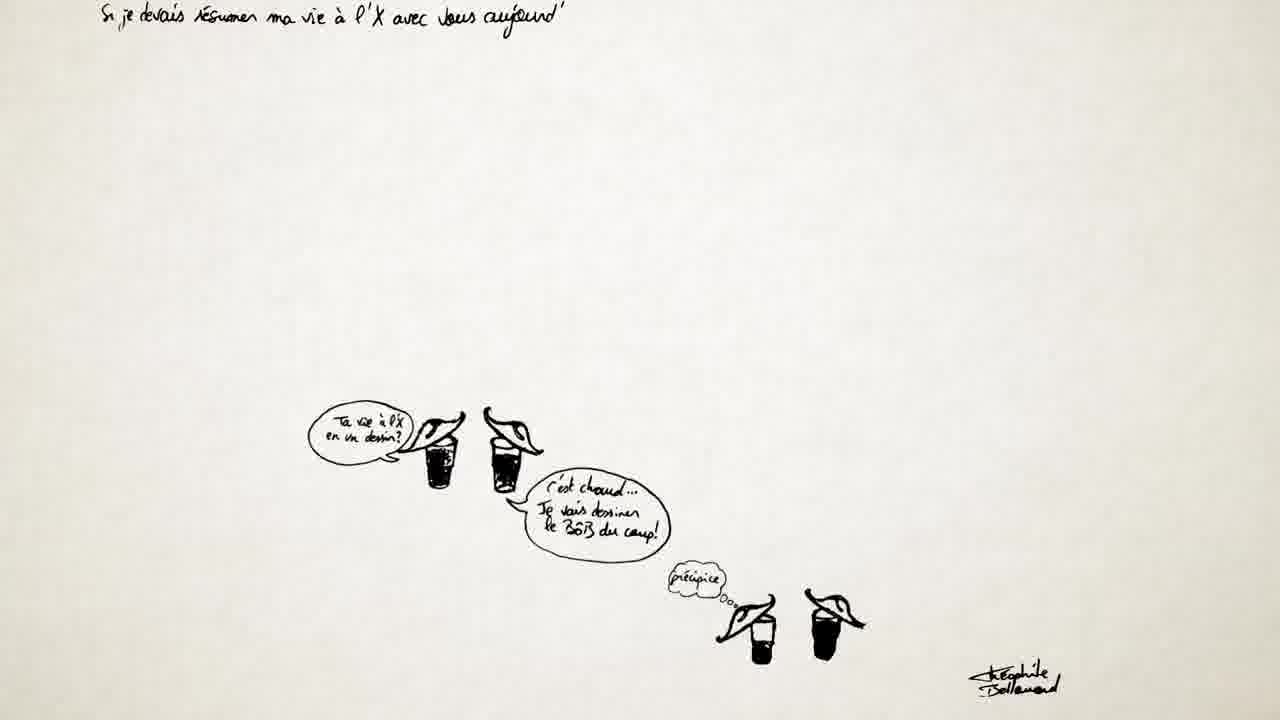 Si je devais résumer ma vie à l'X avec vous aujourd'
Ta vie à l'X
en un dessin?
c'est chaud...
Je vais dessiner
le BôB du coup!
précipice
Théophile